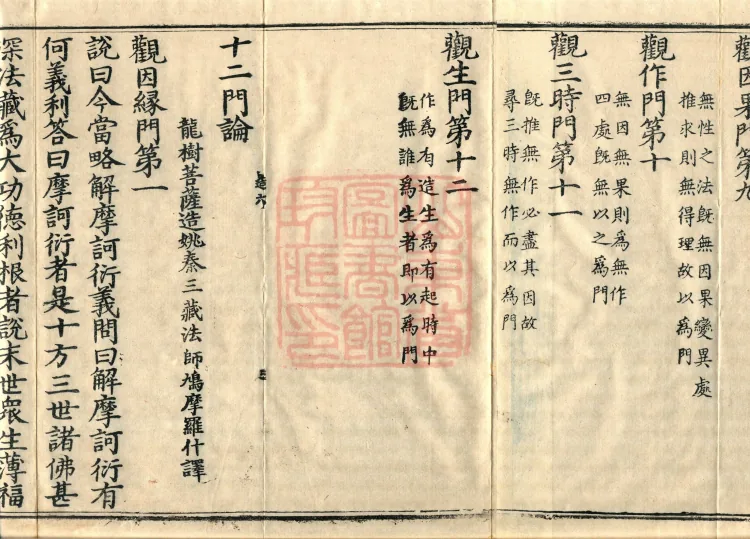 觀因果門第九
無性之法既無因果變異處
推求則無得理故以為門
觀作門第十
無因無果則為無作
四處既無以之為門
觀三時門第十一
既推無作必盡其因故
尋三時無作而以為門
觀生門第十二
作為有造生為有起時中
既無誰為生者即以為門
十二門論
龍樹菩薩造姚秦三藏法師鳩摩羅什譯
觀因緣門第一
說曰今當略解摩訶衍義問曰解摩訶衍有
何義利答曰摩訶衍者是十方三世諸佛甚
深法藏為大功德利根者說末世眾生薄福